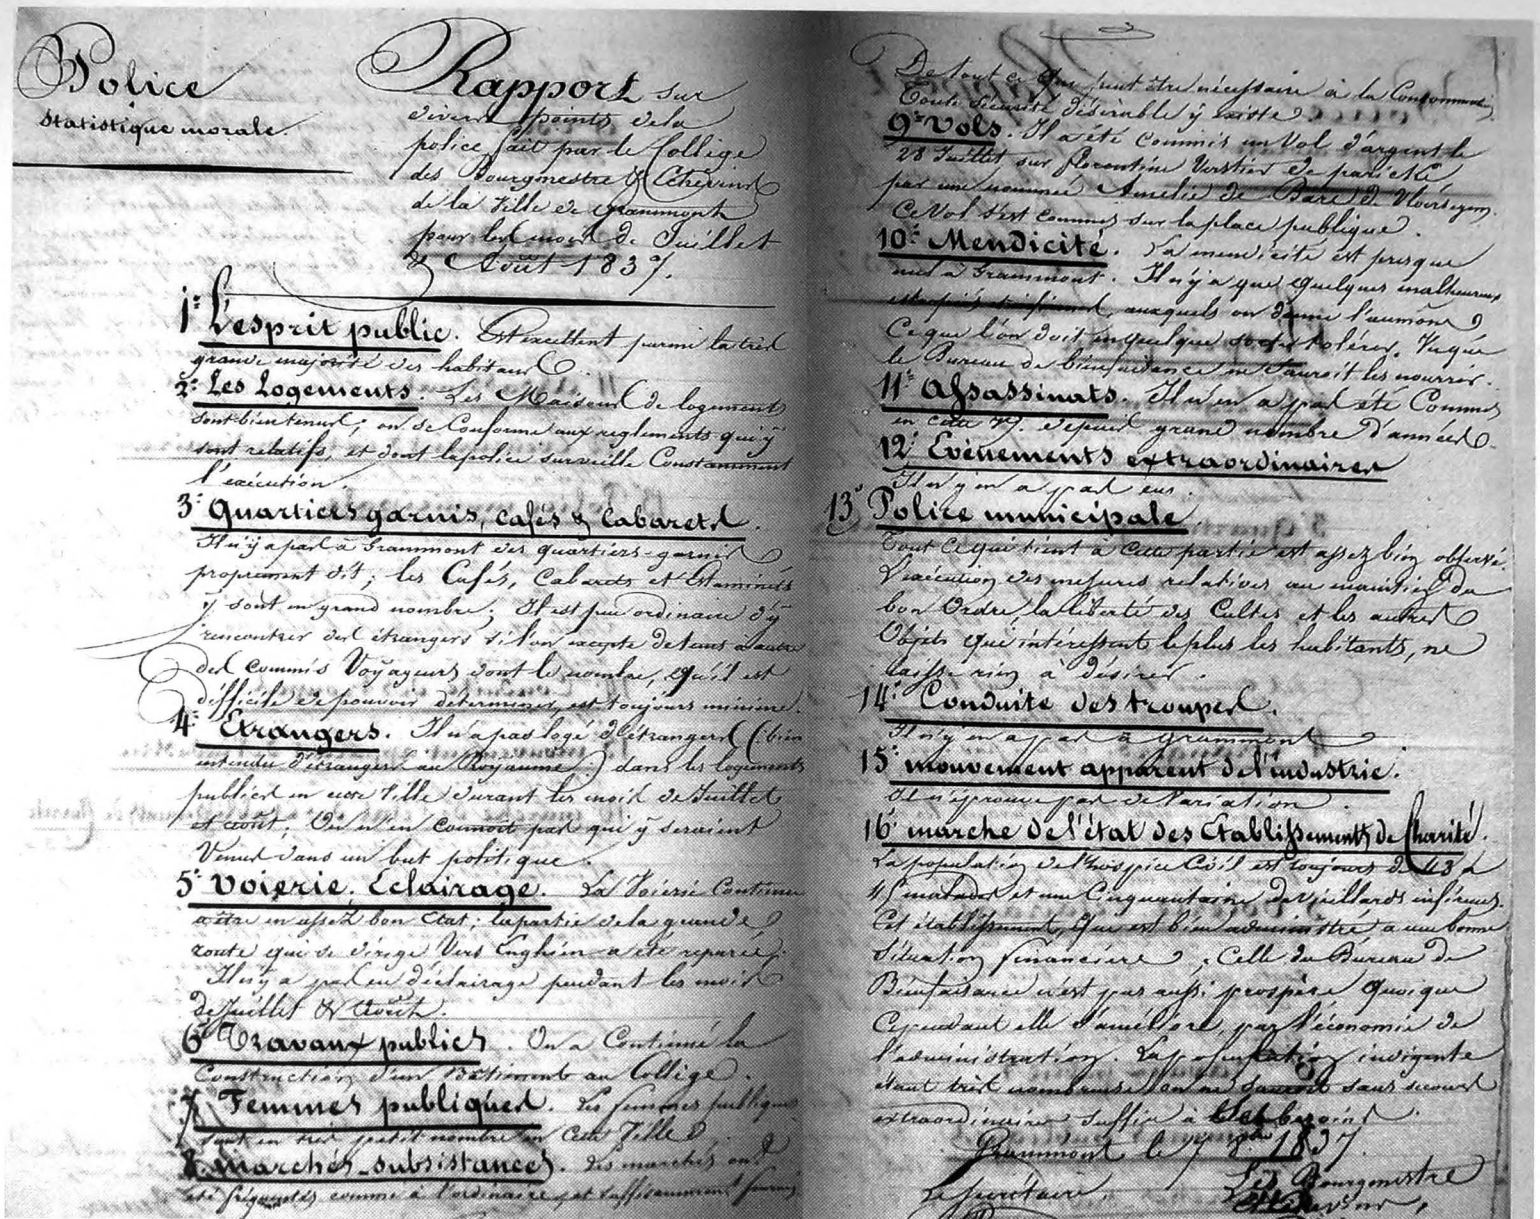 Police
Statistique morale.
Rapport sur
divers points de la
police fait par le Collège
des Bourgmestre & Echevins
de la Ville de Grammont
pour les mois de Juillet
& Août 1837.
1° L'esprit public. Est excellent parmi la très
grande majorité des habitans.
2° Les Logements. Les Maisons de logements
sont bien tenus; on se conforme aux reglements qui y
sont relatifs, et dont la police surveille Constamment
l'exécution.
3° Quartiers garnis, cafés & Cabarets.
Il n'y a pas à Grammont des quartiers-garnis
proprement dit; les Cafés, Cabarets et Estaminets
y sont en grand nombre; Il est peu ordinaire d'y
rencontrer des étrangers si l'on excepte de tems à autre
des commis Voyageurs dont le nombre, qu'il est
difficile de pouvoir déterminer, est toujours minime.
4° Etrangers. Il n'a pas logé d'étrangers (bien
entendu d'étrangers au Royaume) dans les logements
publics en cette Ville durant les mois de Juillet
et août; On n'en connoit pas qui y seraient
Venus dans un but politique.
5° Voierie. Eclairage. La Voierie Continue
à être en assez bon Etat; la partie de la grande
route qui se dirige Vers Enghien a été reparée;
Il n'y a pas eu d'éclairage pendant les mois
de Juillet & Août.
6° Travaux publics. On a Continué la
Construction d'un Batiment au Collège.
7 Femmes publiques. Les femmes publiques
sont en très petit nombre en Cette Ville.
8. marchés-subsistances. Les marchés ont
été fréquentés comme à l'ordinaire, et suffisamment fournis
De tout ce que peut être nécessaire à la Consommation,
toute sécurité désirable y existe.
9° Vols. Il a été commis un Vol d'argent le
28 Juillet sur florentine de paricke
par une nommée Amélie de Bare de
Ce Vol s'est commis sur la place publique.
10° Mendicité. La mendicité est presque
nul à Grammont. Il n'y a que quelques malheureux
estropiés, auxquels on donne l'aumône
Ce que l'on doit en quelque sorte tolérer, Vu que
le Bureau de bienfaisance ne sauroit les nourrir.
11° Assassinats. Il n'en a pas été Commis
en cette Ville depuis grand nombre d'années.
12° Evènements extraordinaires
Il n'y en a pas eus.
13° Police municipale
Tout ce qui tient à cette partie est assez bien observé.
L'exécution des mesures relatives au maintien du
bon Ordre, la liberté des Cultes et les autres
Objets qui intéressent le plus les habitants, ne
laisse rien à désirer.
14° Conduite des troupes.
Il n'y en a pas à Grammont
15° mouvement apparent de l'industrie.
Il n'éprouve pas de Variation.
16° marche de l'état des Etablissements de Charité.
La population de l'hospice Civil est toujours de 43 à
malades et une Cinquantaine de vieillards infirmes.
Cet établissement, que est bien administré a une bonne
Situation financière; Celle du Bureau de
Bienfaisance n'est pas aussi prospère quoique
Cependant elle s'améliore, par l'économie de
l'administration. La population indigente
étant très nombreuse on ne sauroit sans secours
extraordinaire suffir à ses besoins.
Grammont le 7 8bre 1837.
Le secrétaire,
Les Bourgmestre
et Echevins,